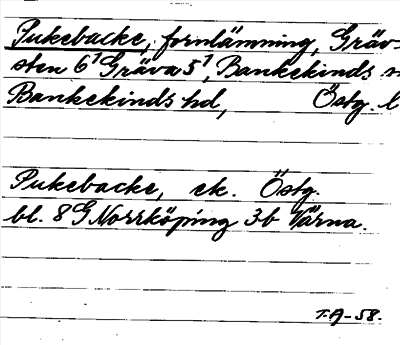 Pukebacke, fornlämning, Gräv-
sten 6¹ Gräva 5¹, Bankekinds
Bankekinds hd, Östg. l
Pukebacke, ek. Östg.
bl. 8G Norrköping 3b Värna.
T.A-58.